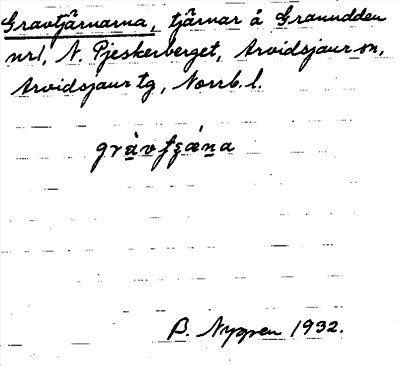 Gravtjärnarna, tjärnar å Granudden
nr 1, N. Pjeskerberget, Arvidsjaur sn,
Arvidsjaur tg, Norrb. l.
gràvtʂæ̀na
B. Nygren 1932.